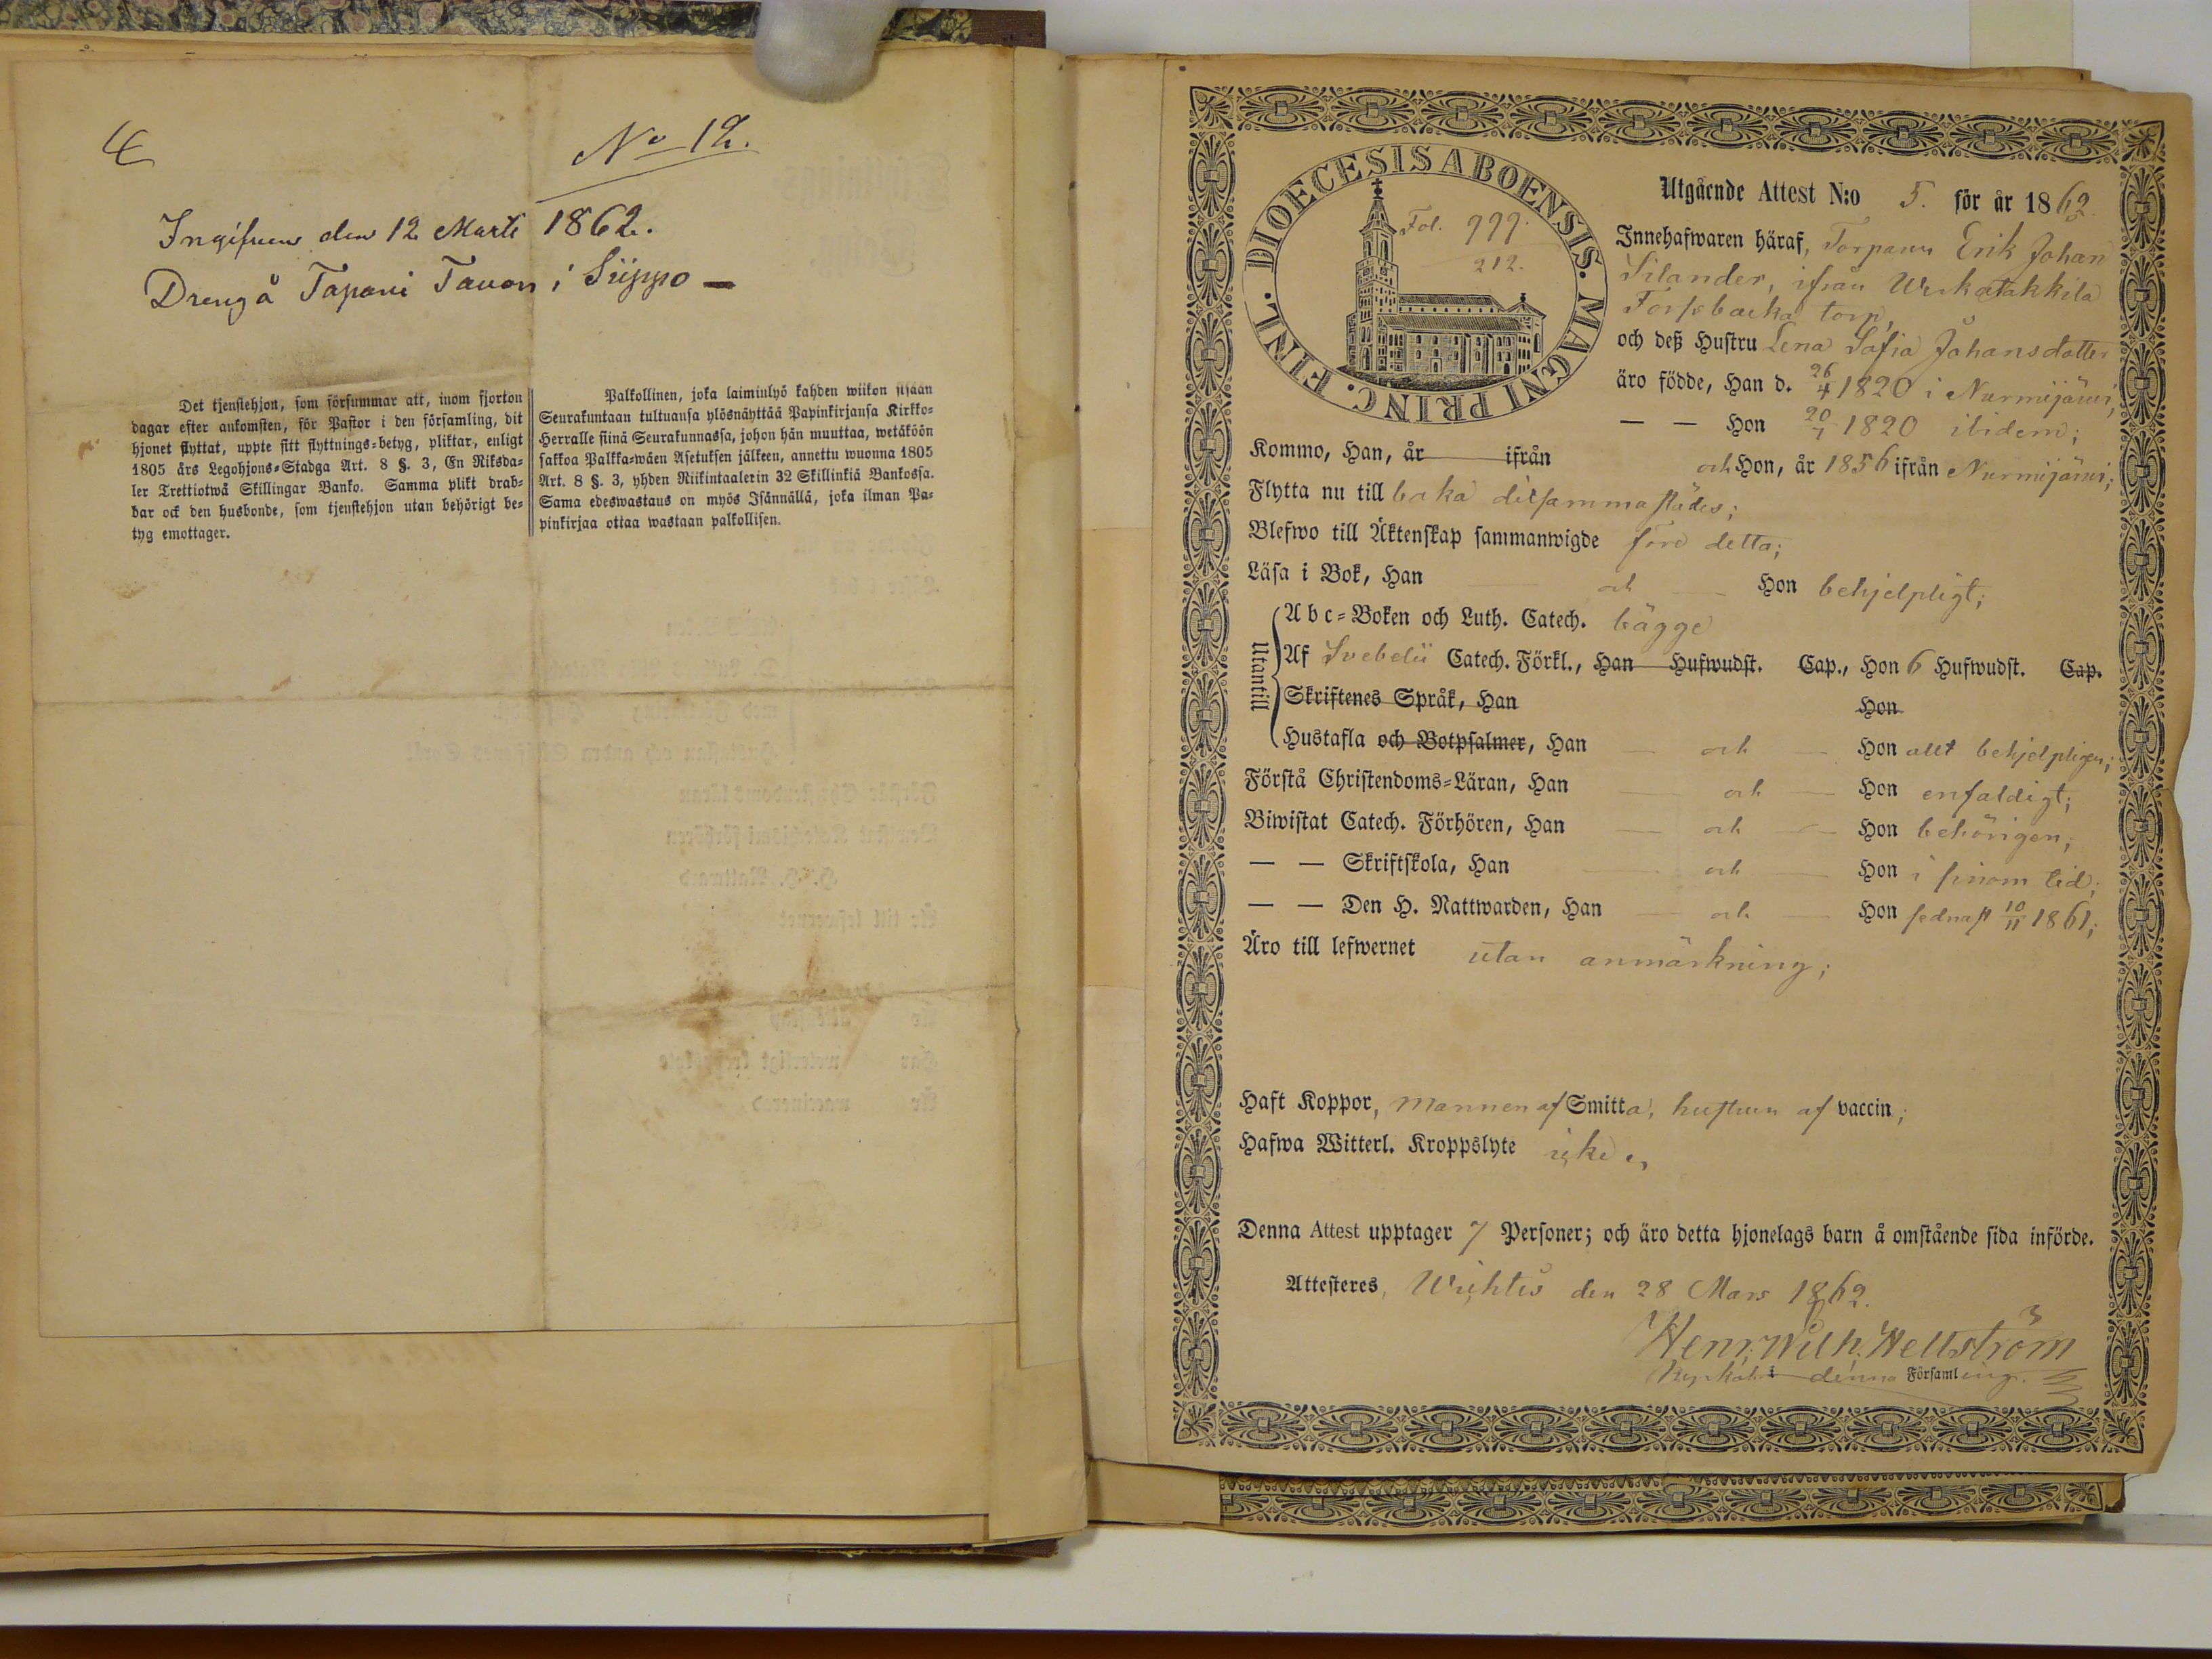 4
No 12.
Ingifven den 12 Marti 1862.
Dreng å Tapani Tavon i Siippo —
Det tjenstehjon, som försummar att, inom fjorton
dagar efter ankomsten, för Pastor i den församling, dit
hjonet flyttat, uppte sitt flyttnings-betyg, pliktar, enligt
1805 års Legohjons-Stadga Art. 8 §. 3, En Riksda-
ler Trettiotwå Skillingar Banko. Samma plikt drab-
bar ock den husbonde, som tjenstehjon utan behörigt be-
tyg emottager.
Palkollinen, joka laiminlyö kahden wiikon sisään
Seurakuntaan tultuansa ylösnäyttää Papinkirjansa Kirkko-
Herralle siinä Seurakunnassa, johon hän muuttaa, wetäköön
sakkoa Palkka-wäen Asetuksen jälkeen, annettu wuonna 1805
Art. 8 §. 3, yhden Riikintaalerin 32 Skillinkiä Bankossa.
Sama edeswastaus on myös Isännällä, joka ilman Pa-
pinkirjaa ottaa wastaan palkollisen.
DIOECESIS ABOENSIS. MAGNI PRINC. FINL.
Fol. 999.
212.
Utgående Attest N:o 5. för år 1862.
Innehafwaren häraf, Torparen Erik Johan
Silander, ifrån Werkatakkila
Forssbacka torp,
och deß Hustru Lena Sofia Johansdotter
äro födde, Han d. 26/4 1820 i Nurmijärvi,
— — Hon 20/1 1820 ibidem;
Kommo, Han, år ifrån och Hon, år 1856 ifrån Nurmijärvi;
Flytta nu till baka ditsammastädes;
Blefwo till Äktenskap sammanwigde före detta;
Läsa i Bok, Han och Hon behjelpligt;
Utantill
Abc-Boken och Luth. Catech. bägge
Af Svebelii Catech. Förkl., Han Hufwudst. Cap., Hon 6 Hufwudst. Cap.
Skriftenes Språk, Han Hon
Hustafla och Botpsalmer, Han och Hon allt behjelpligen;
Förstå Christendoms-Läran, Han och Hon enfaldigt;
Biwistat Catech. Förhören, Han och Hon behörigen;
— — Skriftskola, Han och Hon i sinom tid;
— — Den H. Nattwarden, Han och Hon sednast 10/11 1861;
Äro till lefwernet utan anmärkning;
Haft Koppor, mannen af Smitta, hustrun af vaccin;
Hafwa Witterl. Kroppslyte icke.
Denna Attest upptager 7 Personer; och äro detta hjonelags barn å omstående sida införde.
Attesteres, Wichtis den 28 Mars 1862.
Henr. Wilh. Wellström
i denna Församling.